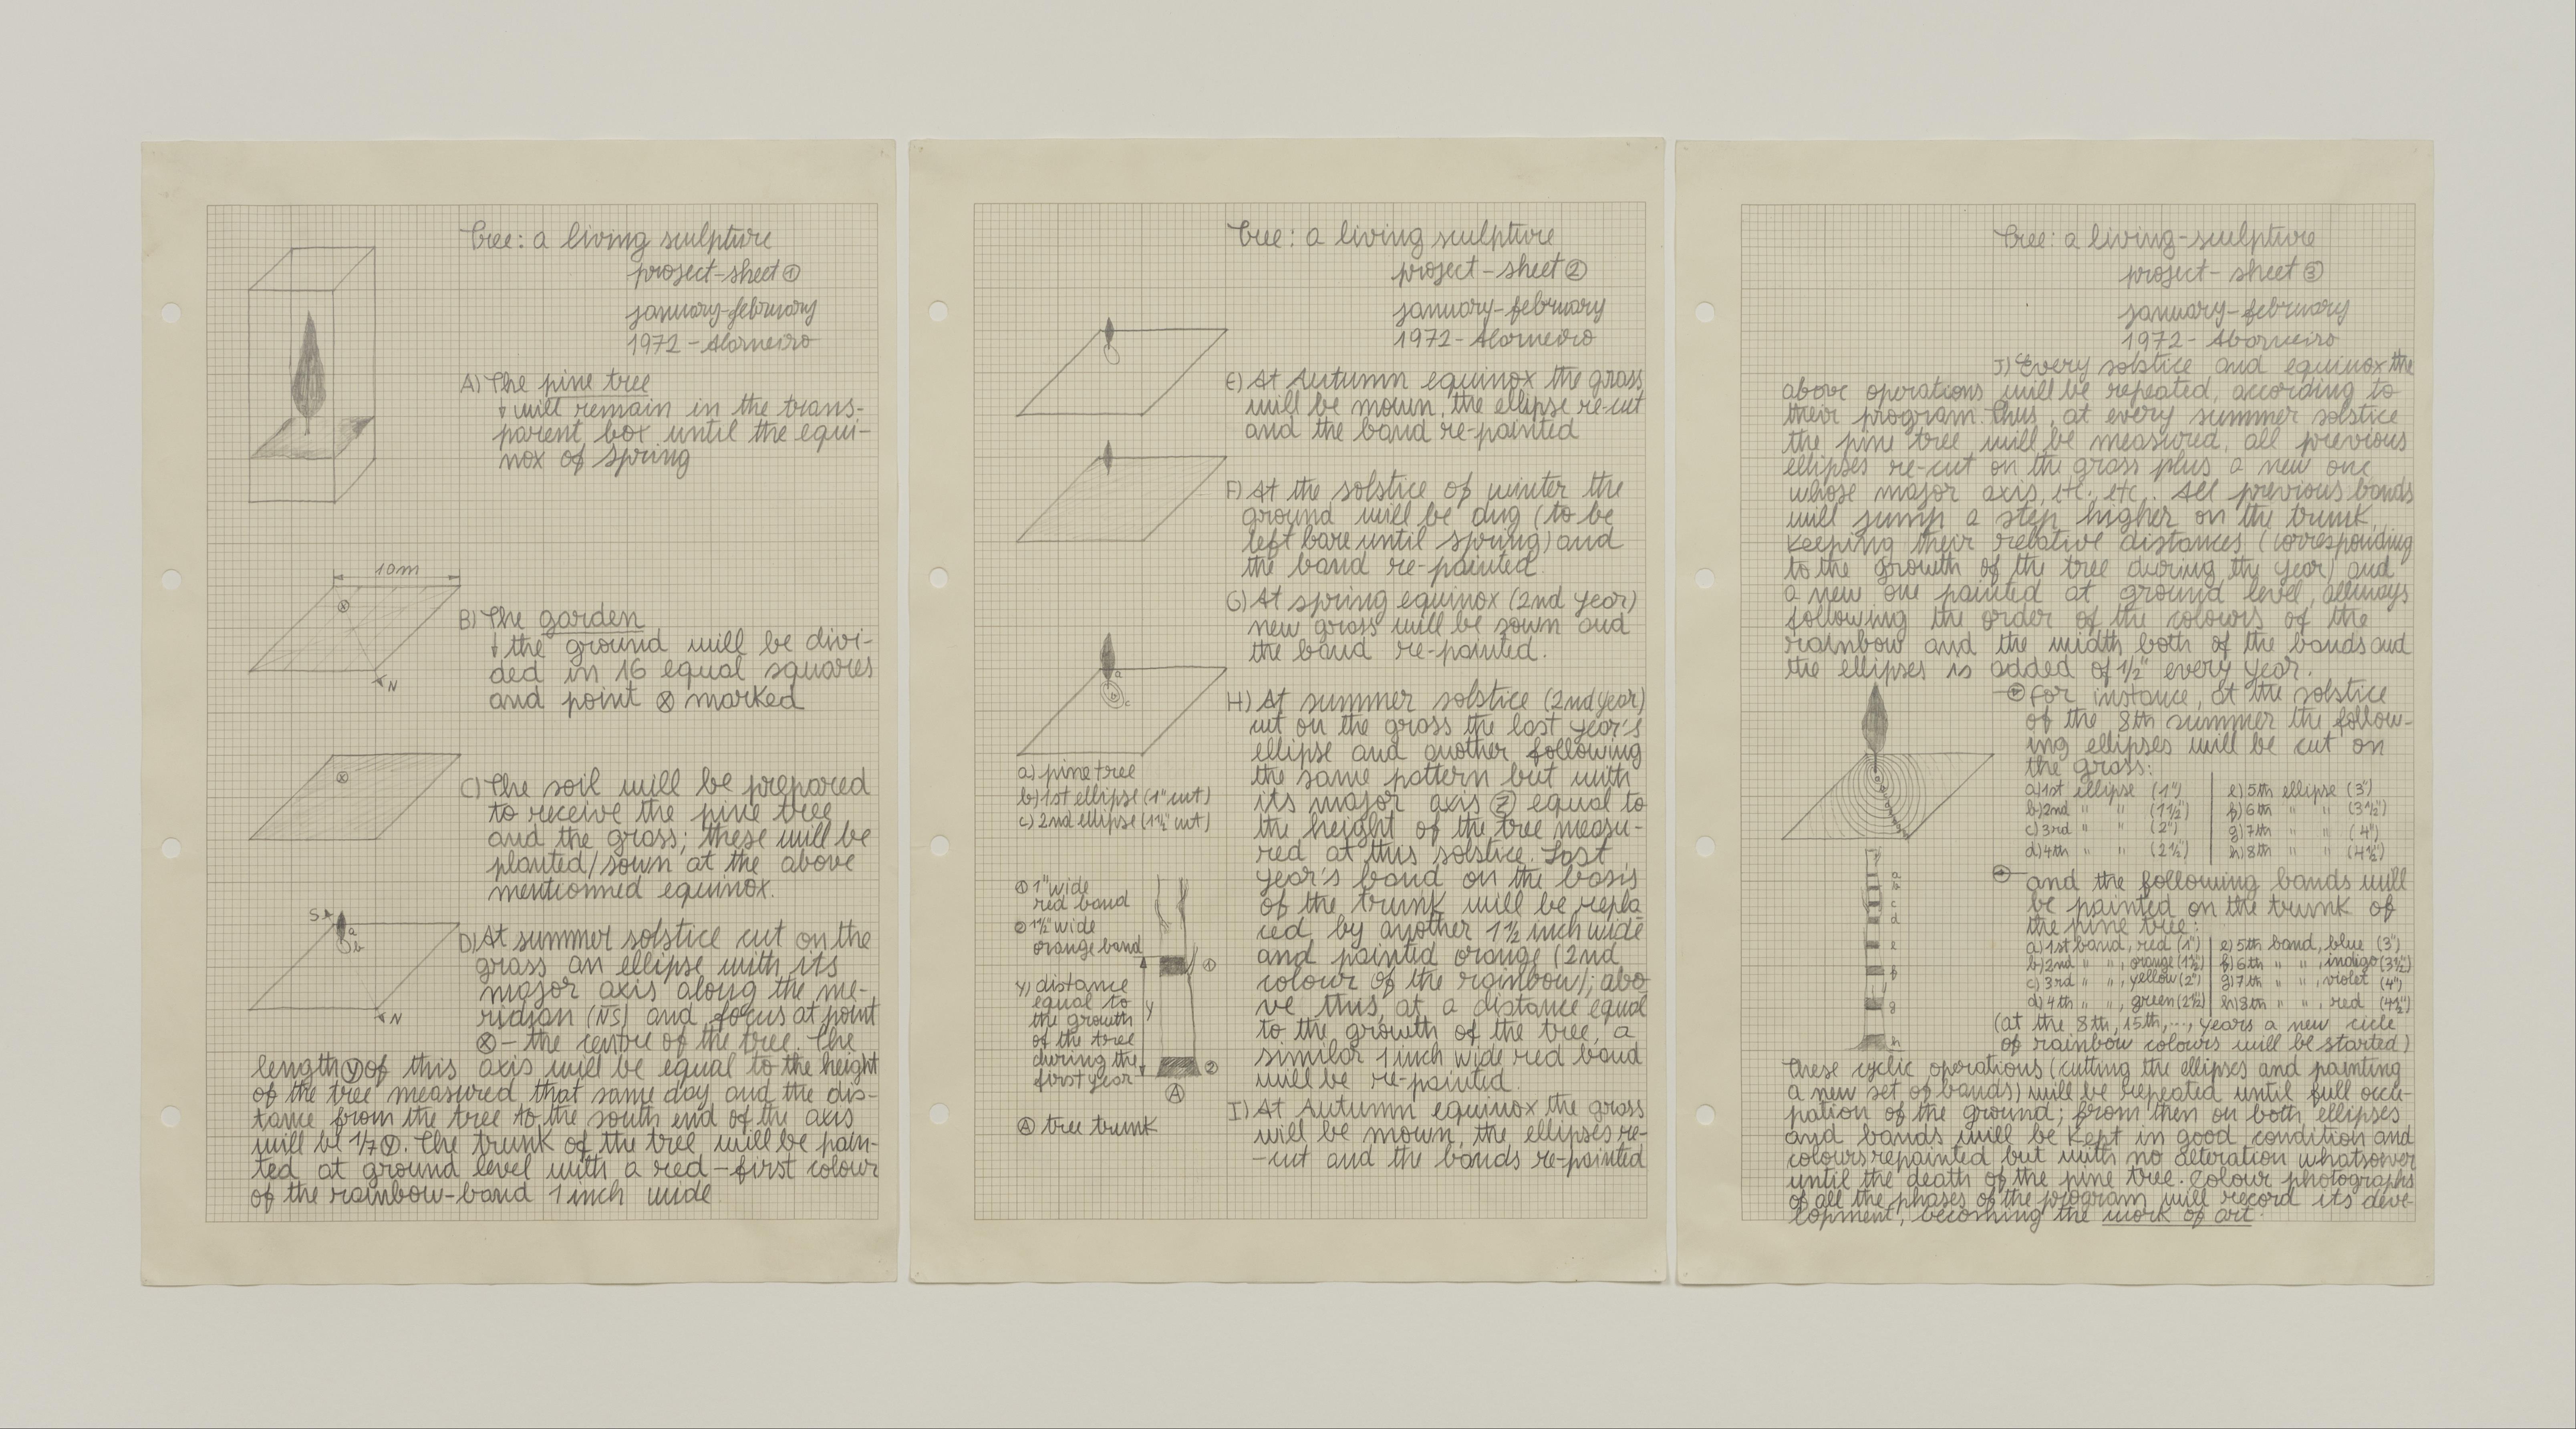 Tree: a living sculpture
project-sheet ①
january-february
1972 - Alorneiro
A) The pine tree
↓ will remain in the trans-
parent box until the equi-
nox of spring
10m
⊗
N
B) The garden
↓ the ground will be divi-
ded in 16 equal squares
and point ⊗ marked
⊗
C) The soil will be prepared
to receive the pine tree
and the grass; these will be
planted/sown at the above
mentionned equinox.
S
a
b
N
D) At summer solstice cut on the
grass an ellipse with its
major axis along the me-
ridian (NS) and focus at point
⊗ - the centre of the tree. The
length Ⓨ of this axis will be equal to the height
of the tree measured that same day and the dis-
tance from the tree to the south end of the axis
will be 1/7 Ⓨ. The trunk of the tree will be pain-
ted at ground level with a red-first colour
of the rainbow-band 1 inch wide
Tree: a living sculpture
project-sheet ②
january-february
1972 - Alorneiro
E) At Autumn equinox the grass
will be mown, the ellipse re-cut
and the band re-painted
F) At the solstice of winter the
ground will be dug (to be
left bare until spring) and
the band re-painted.
G) At spring equinox (2nd year)
new grass will be sown and
the band re-painted.
a
b
c
a) pine tree
b) 1st ellipse (1" cut)
c) 2nd ellipse (1½" cut)
H) At summer solstice (2nd year)
cut on the grass the last year's
ellipse and another following
the same pattern but with
its major axis Ⓩ equal to
the height of the tree measu-
red at this solstice. Last
year's band on the basis
of the trunk will be repla
ced by another 1½ inch wide
and painted orange (2nd
colour of the rainbow); abo-
ve this, at a distance equal
to the growth of the tree, a
similar 1 inch wide red band
will be re-painted.
① 1" wide
red band
② 1½" wide
orange band
y) distance
equal to
the growth
of the tree
during the
first year
①
y
②
Ⓐ
Ⓐ tree trunk
I) At Autumn equinox the grass
will be mown, the ellipses re-
-cut and the bands re-painted
Tree: a living-sculpture
project-sheet ③
january-february
1972 - Alorneiro
J) Every solstice and equinox the
above operations will be repeated, according to
their program. Thus, at every summer solstice
the pine tree will be measured, all previous
ellipses re-cut on the grass plus a new one
whose major axis, etc., etc.. All previous bands
will jump a step higher on the trunk,
keeping their relative distances (corresponding
to the growth of the tree during the year) and
a new one painted at ground level, allways
following the order of the colours of the
rainbow and the width both of the bands and
the ellipses is added of 1/2" every year.
For instance, at the solstice
of the 8th summer the follow-
ing ellipses will be cut on
the grass:
a) 1st ellipse (1") e) 5th ellipse (3")
b) 2nd " " (1½") f) 6th " " (3½")
c) 3rd " " (2") g) 7th " " (4")
d) 4th " " (2½") h) 8th " " (4½")
and the following bands will
be painted on the trunk of
the pine tree:
a) 1st band, red (1") e) 5th band, blue (3")
b) 2nd " ", orange (1½") f) 6th " ", indigo (3½")
c) 3rd " ", yellow (2") g) 7th " ", violet (4")
d) 4th " ", green (2½") h) 8th " ", red (4½")
(at the 8th, 15th, ..., years a new cicle
of rainbow colours will be started)
These cyclic operations (cutting the ellipses and painting
a new set of bands) will be repeated until full occu-
pation of the ground; from then on both ellipses
and bands will be kept in good condition and
colours repainted but with no alteration whatsoever
until the death of the pine tree. Colour photographs
of all the phases of the program will record its deve-
lopment, becoming the work of art.